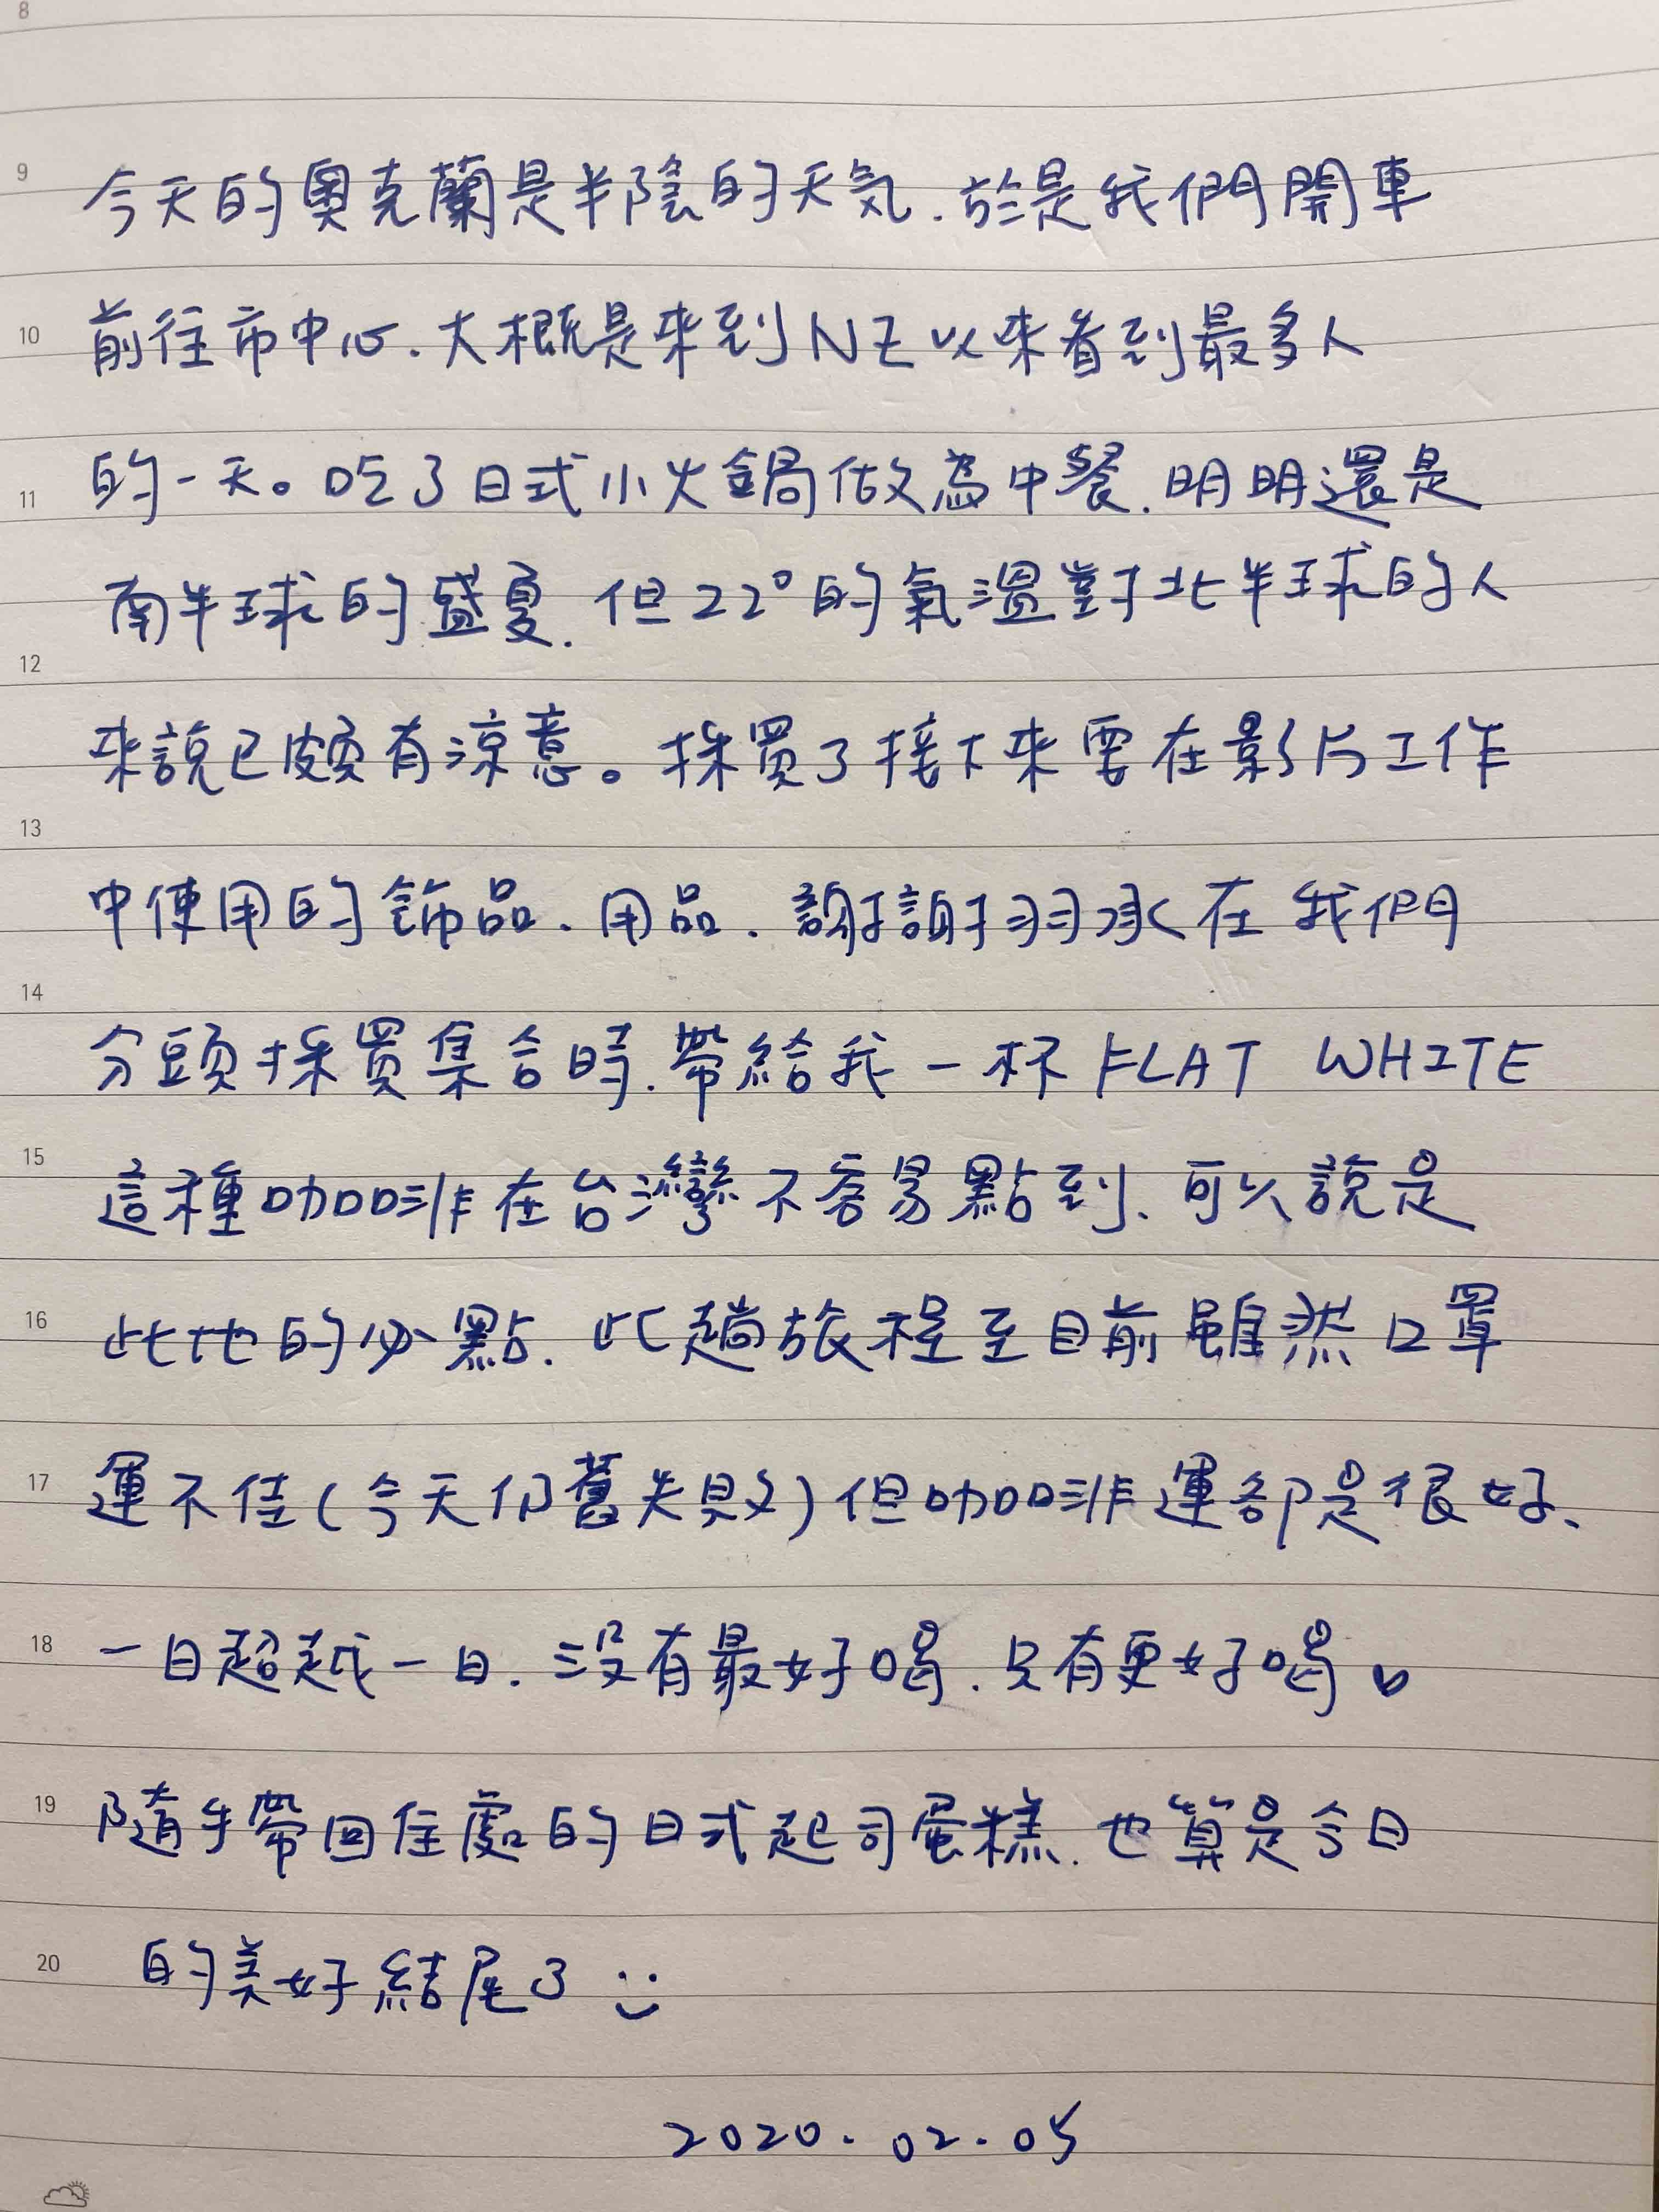 8
9 今天的奧克蘭是半陰的天気.於是我們開車
10 前往市中心.大概是來到NZ以來看到最多人
11 的一天。吃了日式小火鍋做為中餐.明明還是
南半球的盛夏.但22°的氣溫對北半球的人
12
來說已頗有涼意。採買了接下來要在影片工作
13
中使用的飾品.用品.謝謝羽承在我們
14
分頭採買集合時.帶給我一杯FLAT WHITE
15 這種咖啡在台灣不容易點到.可以說是
16 此地的必點.此趟旅程至目前雖然口罩
17 運不佳(今天仍舊失敗)但咖啡運都是很好、
18 一日超越一日.沒有最好喝.只有更好喝。
19 隨手帶回住處的日式起司蛋糕.也算是今日
20 的美好結尾了
2020.02.05